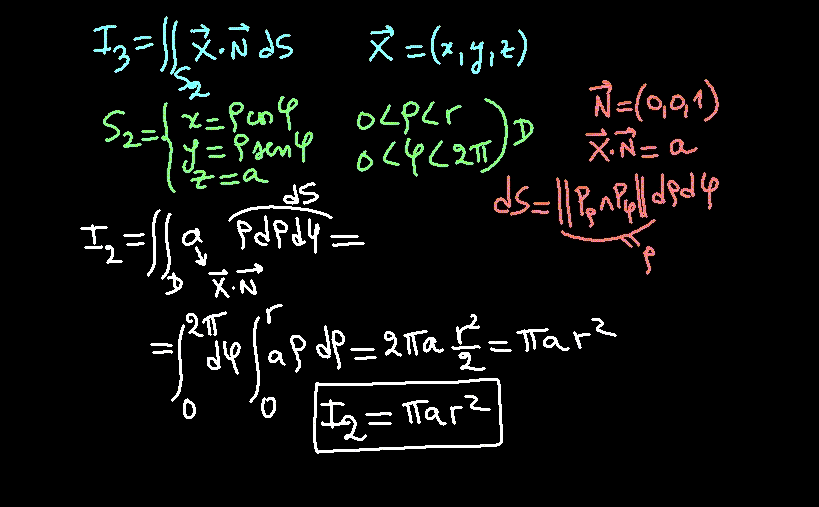 I₃ = ∬_{S₂} X⃗·N⃗ dS    X⃗ = (x, y, z)
S₂ = { x = ρ cos φ    0 < ρ < r
y = ρ sen φ    0 < φ < 2π ) D
z = a
N⃗ = (0,0,1)
X⃗·N⃗ = a
dS = ||P_ρ ∧ P_φ|| dρ dφ
ρ
dS
I₂ = ∬_D a ρ dρ dφ =
X⃗·N⃗
= ∫₀^{2π} dφ ∫₀^r a ρ dρ = 2πa r²/2 = πar²
I₂ = πar²